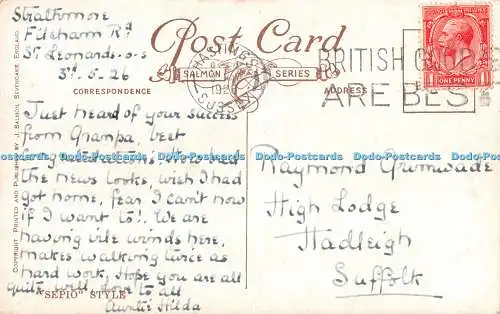 Strathmore
Filsham Rd
St Leonards-o-s
3rd. 5-26
Post Card
SALMON SERIES
CORRESPONDENCE
ADDRESS
HASTINGS
SUSSEX
BRITISH GOODS
ARE BEST
ONE PENNY
Just heard of your success
from Granpa, best
congratulations. How bad
the news looks, wish I had
got home, fear I can't now
if I want to!. We are
having vile winds here,
makes walking twice as
hard work, Hope you are all
quite well, love to all
Auntie Hilda
Raymond Grimwade
High Lodge
Hadleigh
Suffolk
"SEPIO" STYLE
COPYRIGHT. PRINTED AND PUBLISHED BY J. SALMON, SEVENOAKS, ENGLAND.
www.ddr-postcards.com
Ddo-Postcards